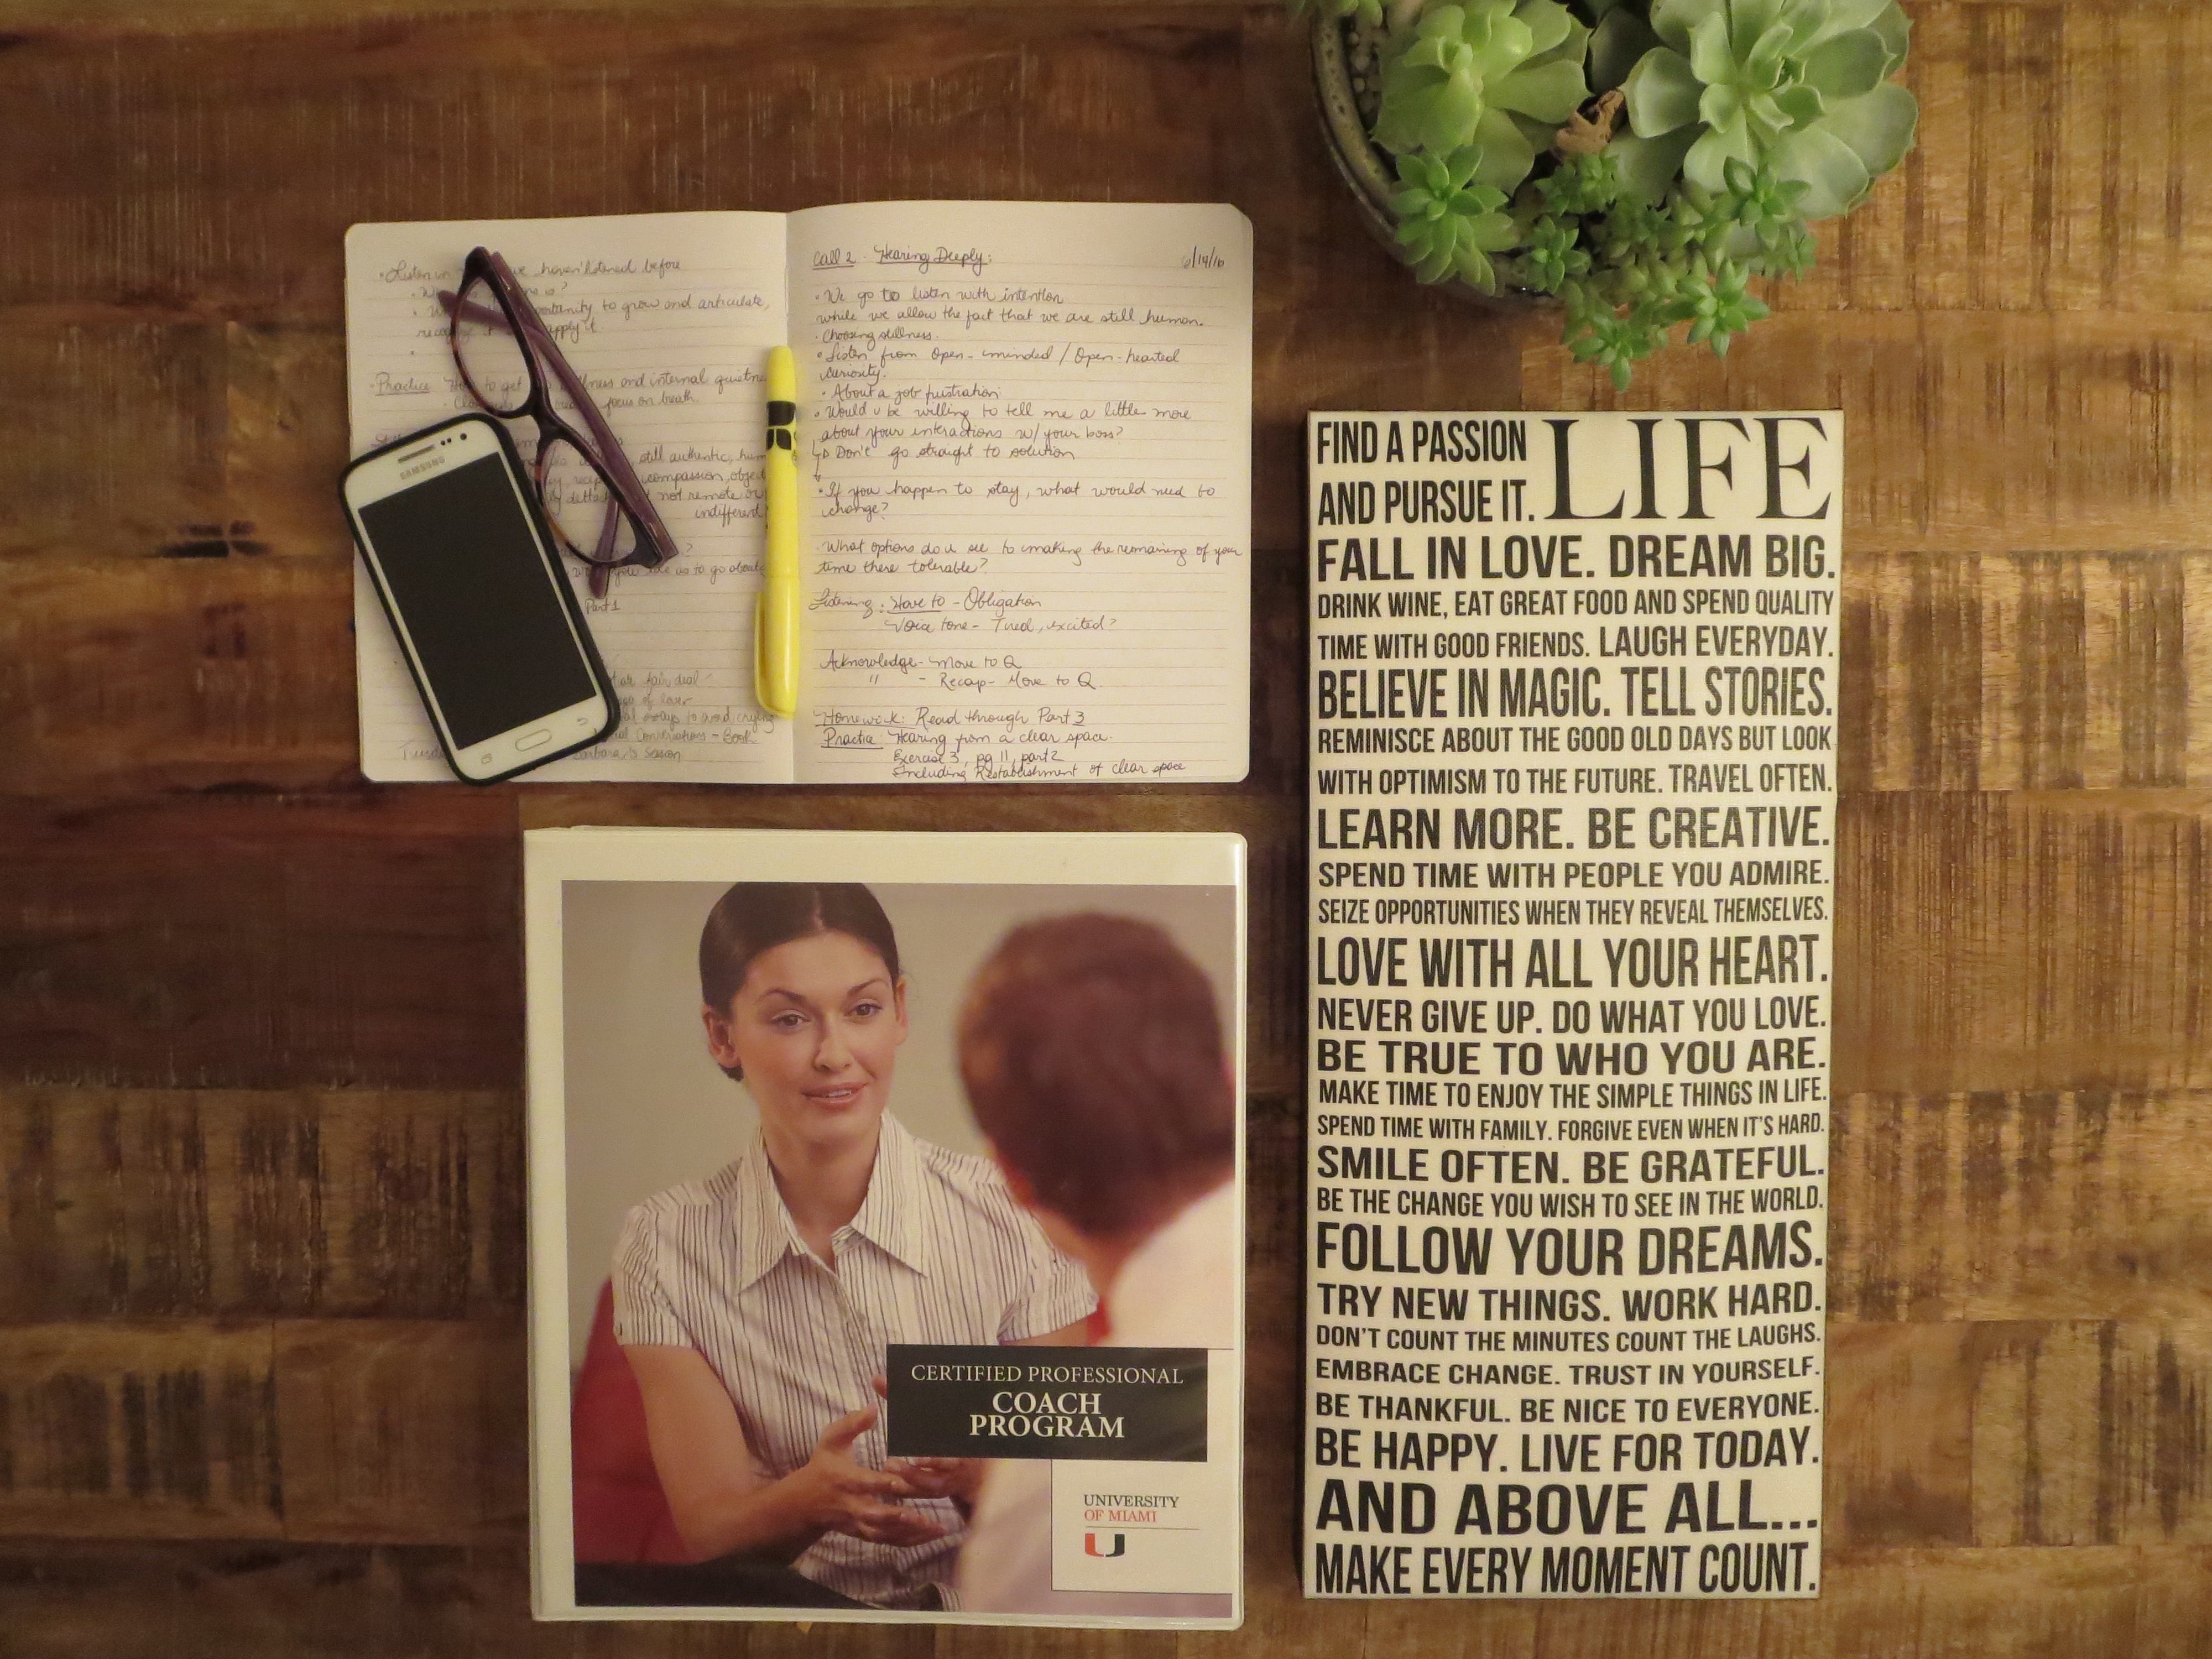 · Listen in we haven't listened before
ortunity to grow and articulate,
apply it.
- Practice How to get llness and internal quietne
focus on breath.
, still authentic, hum
compassion, objec
not remote or
indifferent
as to go about
Part 1
fair deal -
of love
ways to avoid crying
Conversations - Book
Barbara's Session
SAMSUNG
Call 2 - Hearing Deeply: 6/14/16
· We go to listen with intention
while we allow the fact that we are still human.
· Choosing stillness.
· Listen from Open-minded / Open-hearted
curiosity.
· About a job frustration.
· Would u be willing to tell me a little more
about your interactions w/ your boss?
Don't go straight to solution
· If you happen to stay, what would need to
change?
· What options do u see to making the remaining of your
time there tolerable?
Listening: Have to - Obligation
Voice tone - Tired, excited?
Acknowledge - Move to Q
" - Recap - Move to Q.
Homework: Read through Part 3
Practice: Hearing from a clear space.
Exercise 3, pg 11, part 2
Including Restablishment of clear space
CERTIFIED PROFESSIONAL
COACH
PROGRAM
UNIVERSITY
OF MIAMI
U
FIND A PASSION
AND PURSUE IT. LIFE
FALL IN LOVE. DREAM BIG.
DRINK WINE, EAT GREAT FOOD AND SPEND QUALITY
TIME WITH GOOD FRIENDS. LAUGH EVERYDAY.
BELIEVE IN MAGIC. TELL STORIES.
REMINISCE ABOUT THE GOOD OLD DAYS BUT LOOK
WITH OPTIMISM TO THE FUTURE. TRAVEL OFTEN.
LEARN MORE. BE CREATIVE.
SPEND TIME WITH PEOPLE YOU ADMIRE.
SEIZE OPPORTUNITIES WHEN THEY REVEAL THEMSELVES.
LOVE WITH ALL YOUR HEART.
NEVER GIVE UP. DO WHAT YOU LOVE.
BE TRUE TO WHO YOU ARE.
MAKE TIME TO ENJOY THE SIMPLE THINGS IN LIFE.
SPEND TIME WITH FAMILY. FORGIVE EVEN WHEN IT'S HARD.
SMILE OFTEN. BE GRATEFUL.
BE THE CHANGE YOU WISH TO SEE IN THE WORLD.
FOLLOW YOUR DREAMS.
TRY NEW THINGS. WORK HARD.
DON'T COUNT THE MINUTES COUNT THE LAUGHS.
EMBRACE CHANGE. TRUST IN YOURSELF.
BE THANKFUL. BE NICE TO EVERYONE.
BE HAPPY. LIVE FOR TODAY.
AND ABOVE ALL...
MAKE EVERY MOMENT COUNT.